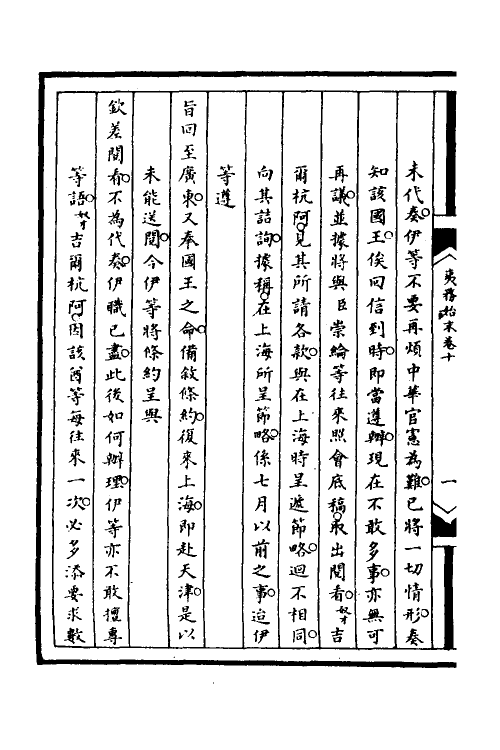 未代奏。伊等不要再煩中華官憲為難。已將一切情形。奏
知該國王。俟回信到時。即當遵辦。現在不敢多事。亦無可
再議。並據將與臣崇綸等往來照會底稿。取出閱看。奴才吉
爾杭阿。見其所請各款。與在上海時呈遞節略。迥不相同。
向其詰詢。據稱。在上海所呈節略。係七月以前之事。迨伊
等遵
旨回至廣東。又奉國王之命。備敘條約。復來上海。即赴天津。是以
未能送閱。今伊等將條約呈與
欽差閱看。不為代奏。伊職已盡。此後如何辦理。伊等亦不敢擅專
等語。奴才吉爾杭阿。因該酋等每往來一次。必多添要求數
夷務始末卷十
一